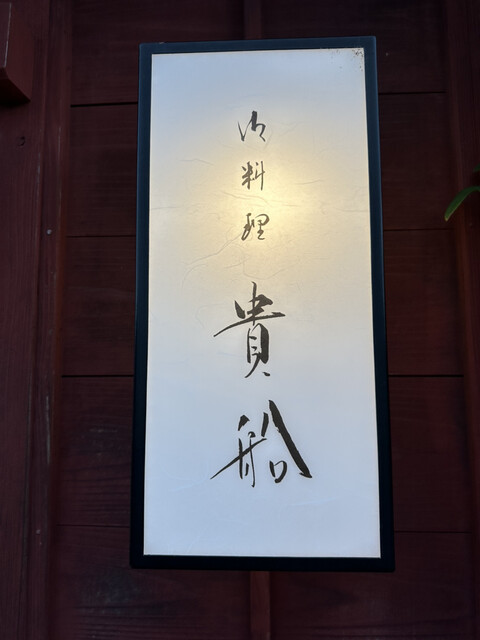 御料理
貴船